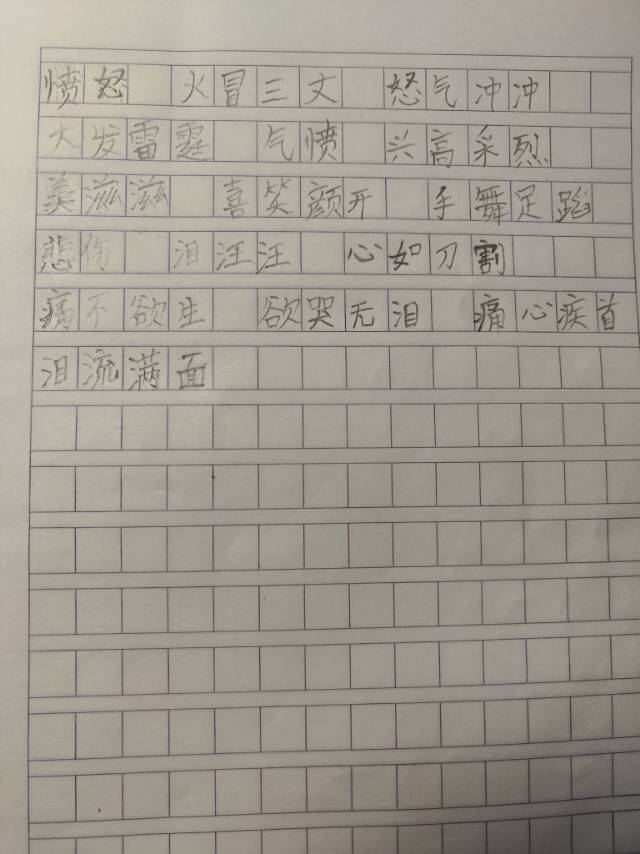 愤怒 火冒三丈 怒气冲冲
大发雷霆 气愤 兴高采烈
美滋滋 喜笑颜开 手舞足蹈
悲伤 泪汪汪 心如刀割
痛不欲生 欲哭无泪 痛心疾首
泪流满面